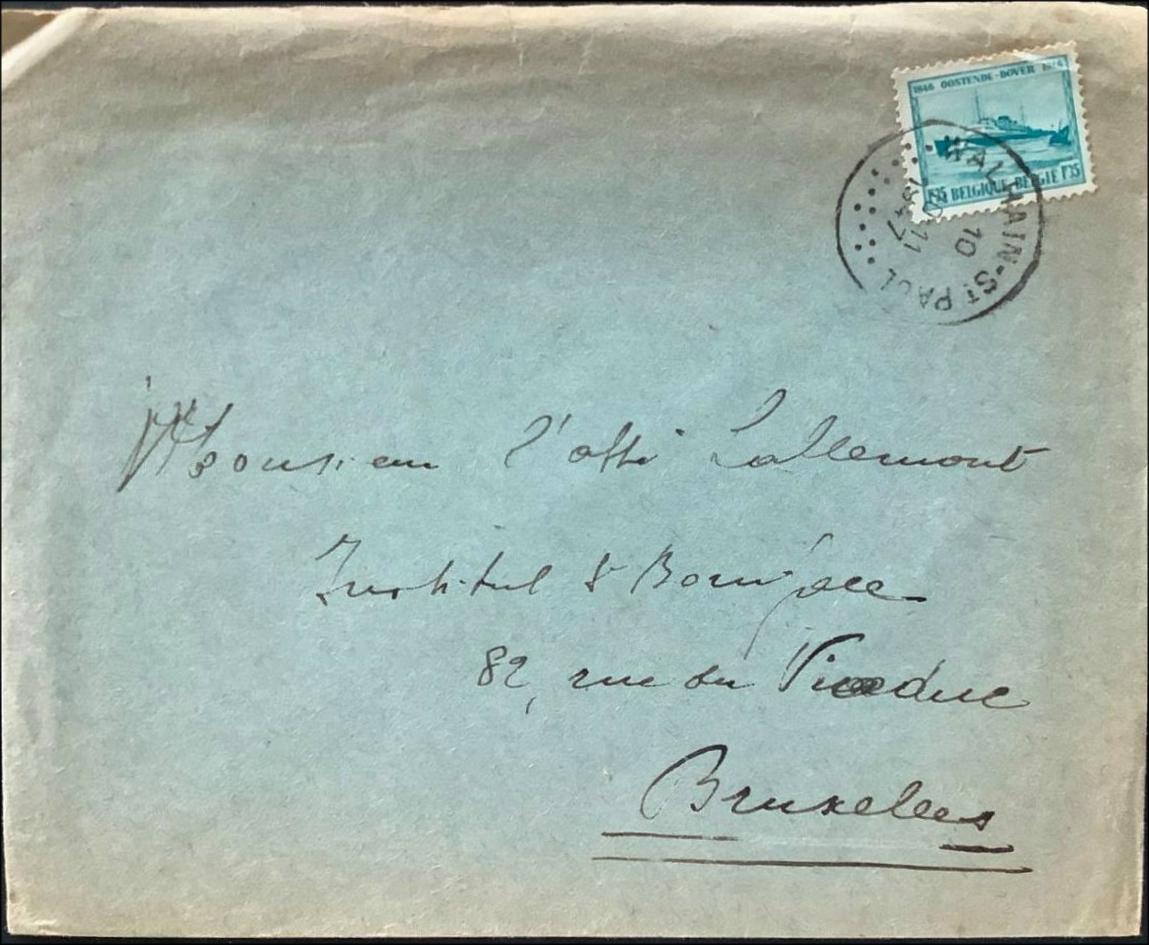 1846 OOSTENDE-DOVER 1946
1F35 BELGIQUE-BELGIE 1F35
WALHAIN-ST PAUL
10
11
1947
Monsieur l'abbé Lallemont
Institut St Boniface
82, rue du Viaduc
Bruxelles